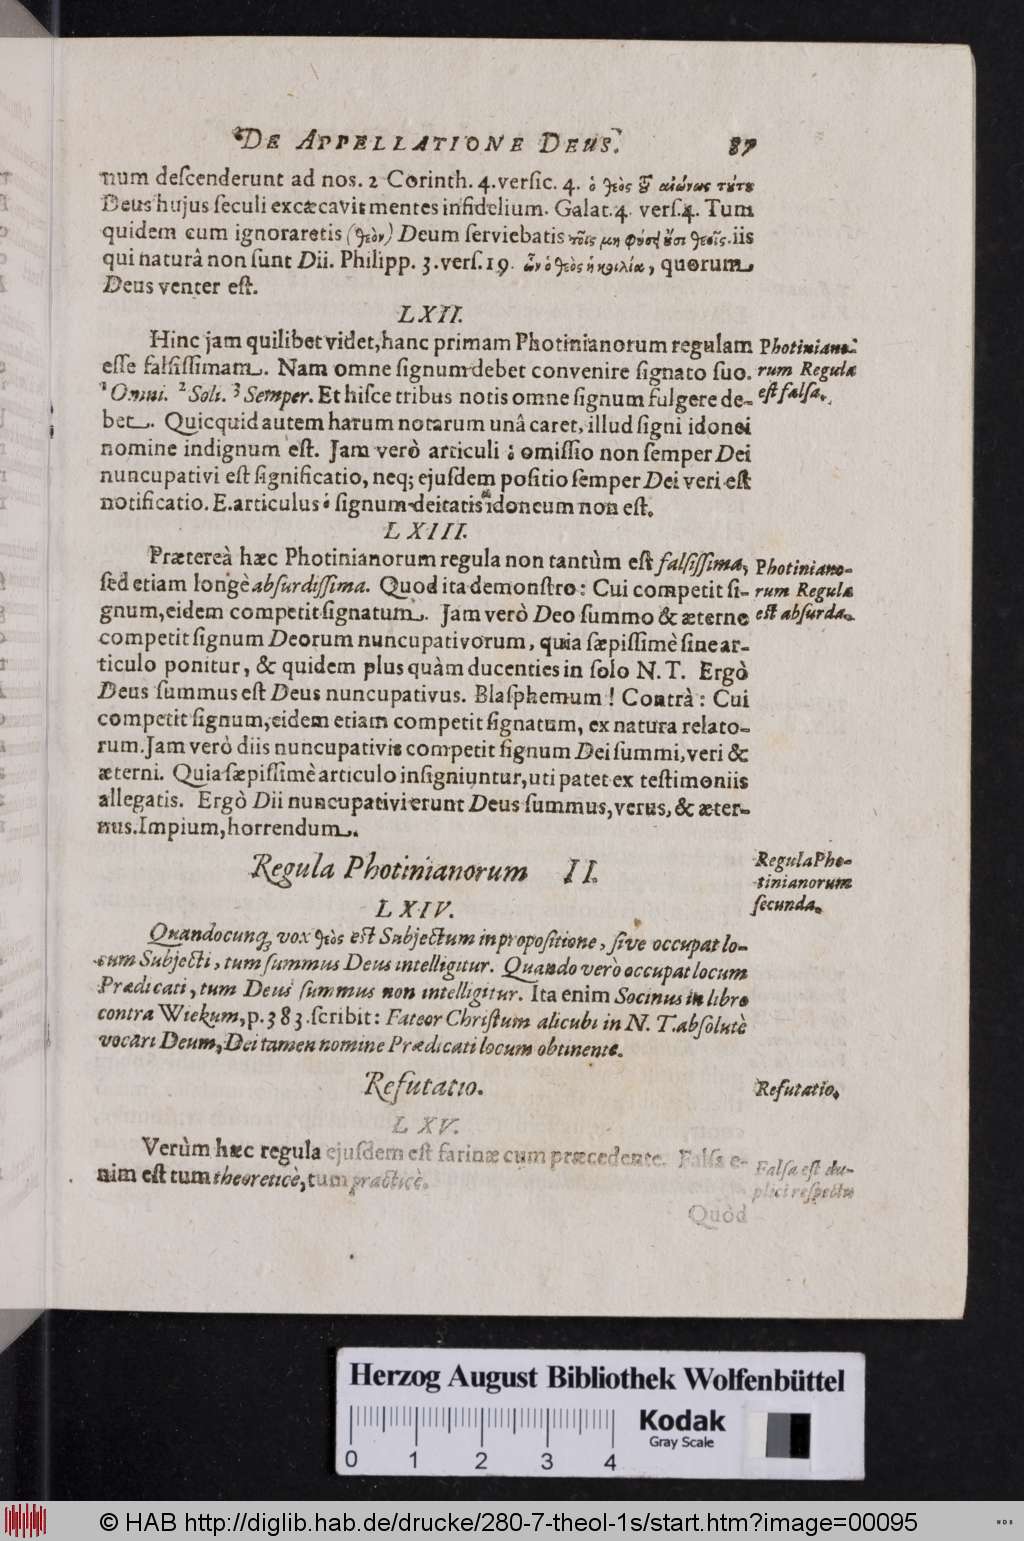 DE APPELLATIONE DEUS. 87
num deſcenderunt ad nos. 2 Corinth. 4. verſic. 4. ὁ θεὸς τοῦ αἰῶνος τούτου
Deus hujus ſeculi excæcavit mentes infidelium. Galat. 4. verſ. 4. Tum
quidem cum ignoraretis (θεὸν) Deum ſerviebatis τοῖς μη φύσει οὖσι θεοῖς. iis
qui naturâ non ſunt Dii. Philipp. 3. verſ. 19. ὧν ὁ θεὸς ἡ κοιλία, quorum
Deus venter eſt.
LXII.
Hinc jam quilibet videt, hanc primam Photinianorum regulam
eſſe falſiſſimam. Nam omne ſignum debet convenire ſignato ſuo.
1 Omni. 2 Soli. 3 Semper. Et hiſce tribus notis omne ſignum fulgere de-
bet. Quicquid autem harum notarum unâ caret, illud ſigni idonei
nomine indignum eſt. Jam verò articuli ὁ omiſſio non ſemper Dei
nuncupativi eſt ſignificatio, neq; ejuſdem poſitio ſemper Dei veri eſt
notificatio. E. articulus ὁ ſignum deitatis idoneum non eſt.
Photiniano-
rum Regula
eſt falſa.
LXIII.
Prætereà hæc Photinianorum regula non tantùm eſt falſiſſima,
ſed etiam longè abſurdiſſima. Quod ita demonſtro: Cui competit ſi-
gnum, eidem competit ſignatum. Jam verò Deo ſummo & æterno
competit ſignum Deorum nuncupativorum, quia ſæpiſſimè ſine ar-
ticulo ponitur, & quidem plus quàm ducenties in ſolo N. T. Ergò
Deus ſummus eſt Deus nuncupativus. Blaſphemum! Contrà: Cui
competit ſignum, eidem etiam competit ſignatum, ex natura relato-
rum. Jam verò diis nuncupativis competit ſignum Dei ſummi, veri &
æterni. Quia ſæpiſſimè articulo inſigniuntur, uti patet ex teſtimoniis
allegatis. Ergò Dii nuncupativi erunt Deus ſummus, verus, & æter-
nus. Impium, horrendum.
Photiniano-
rum Regula
eſt abſurda.
Regula Photinianorum II.
Regula Pho-
tinianorum
ſecunda.
LXIV.
Quandocunq; vox θεὸς eſt Subjectum in propoſitione, ſive occupat lo-
cum Subjecti, tum ſummus Deus intelligitur. Quando verò occupat locum
Prædicati, tum Deus ſummus non intelligitur. Ita enim Socinus in libro
contra Wiekum, p. 383. ſcribit: Fateor Chriſtum alicubi in N. T. abſolutè
vocari Deum, Dei tamen nomine Prædicati locum obtinente.
Refutatio.
Refutatio,
LXV.
Verùm hæc regula ejuſdem eſt farinæ cum præcedente. Falſa e-
nim eſt tum theoreticè, tum practicè.
Falſa eſt du-
plici reſpectu
Quòd
Herzog August Bibliothek Wolfenbüttel
Kodak
Gray Scale
0 1 2 3 4
© HAB http://diglib.hab.de/drucke/280-7-theol-1s/start.htm?image=00095